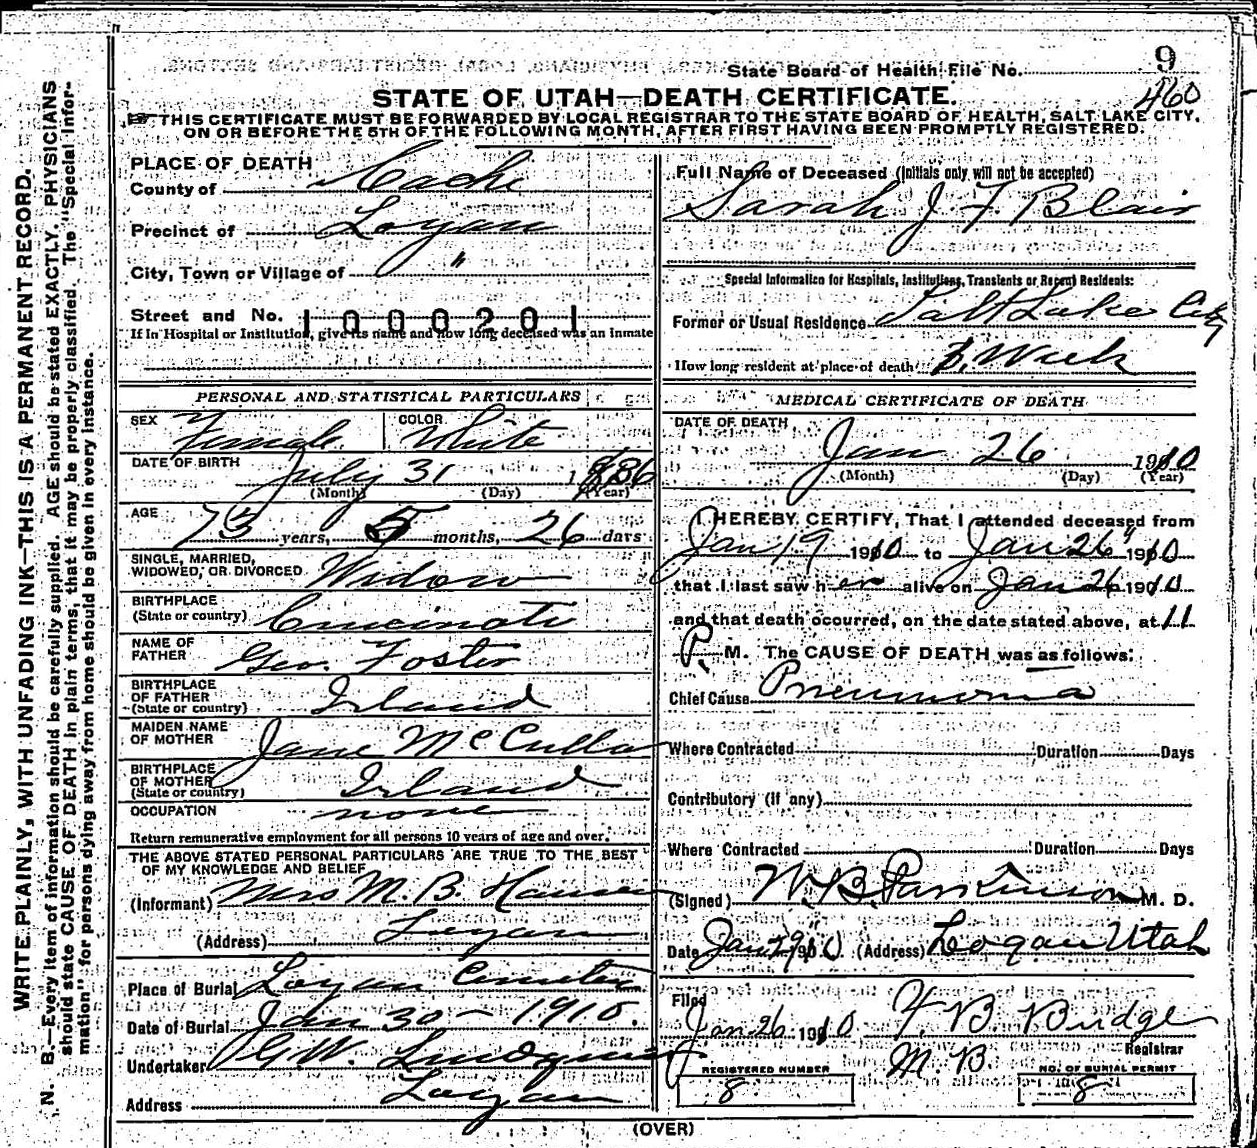 State Board of Health File No. 9
460
STATE OF UTAH—DEATH CERTIFICATE.
THIS CERTIFICATE MUST BE FORWARDED BY LOCAL REGISTRAR TO THE STATE BOARD OF HEALTH, SALT LAKE CITY,
ON OR BEFORE THE 5TH OF THE FOLLOWING MONTH, AFTER FIRST HAVING BEEN PROMPTLY REGISTERED.
WRITE PLAINLY, WITH UNFADING INK—THIS IS A PERMANENT RECORD.
N. B.—Every item of information should be carefully supplied. AGE should be stated EXACTLY. PHYSICIANS
should state CAUSE OF DEATH in plain terms, that it may be properly classified. The "Special Infor-
mation" for persons dying away from home should be given in every instance.
PLACE OF DEATH
County of Cache
Precinct of Logan
City, Town or Village of "
Street and No. 1000201
If in Hospital or Institution, give its name and how long deceased was an inmate
PERSONAL AND STATISTICAL PARTICULARS
SEX Female COLOR White
DATE OF BIRTH July 31 1836
(Month) (Day) (Year)
AGE 73 years, 5 months, 26 days
SINGLE, MARRIED,
WIDOWED, OR DIVORCED Widow
BIRTHPLACE
(State or country) Cincinati
NAME OF
FATHER Geo. Foster
BIRTHPLACE
OF FATHER
(State or country) Irland
MAIDEN NAME
OF MOTHER Jane McCulla
BIRTHPLACE
OF MOTHER
(State or country) Irland
OCCUPATION none
Return remunerative employment for all persons 10 years of age and over.
THE ABOVE STATED PERSONAL PARTICULARS ARE TRUE TO THE BEST
OF MY KNOWLEDGE AND BELIEF
(Informant) Mrs M. B. Hansen
(Address) Logan
Place of Burial Logan Cemetery
Date of Burial Jan 30 - 1910.
Undertaker G. W. Lindquist
Address Logan
Full Name of Deceased (Initials only will not be accepted)
Sarah J F. Blair
Special Information for Hospitals, Institutions, Transients or Recent Residents:
Former or Usual Residence Salt Lake City
How long resident at place of death Week
MEDICAL CERTIFICATE OF DEATH
DATE OF DEATH
Jan 26 1910
(Month) (Day) (Year)
I HEREBY CERTIFY, That I attended deceased from
Jan 19 1910 to Jan 26" 1910
that I last saw her alive on Jan 26 1910
and that death occurred, on the date stated above, at 11
P. M. The CAUSE OF DEATH was as follows:
Chief Cause Pneumonia
Where Contracted Duration Days
Contributory (if any)
Where Contracted Duration Days
(Signed) W. B. Parkinson M. D.
Date Jan 29 1910 (Address) Logan Utah
Filed
Jan 26 1910 F. B Budge
Registrar
M. B.
REGISTERED NUMBER
8
NO. OF BURIAL PERMIT
8
(OVER)